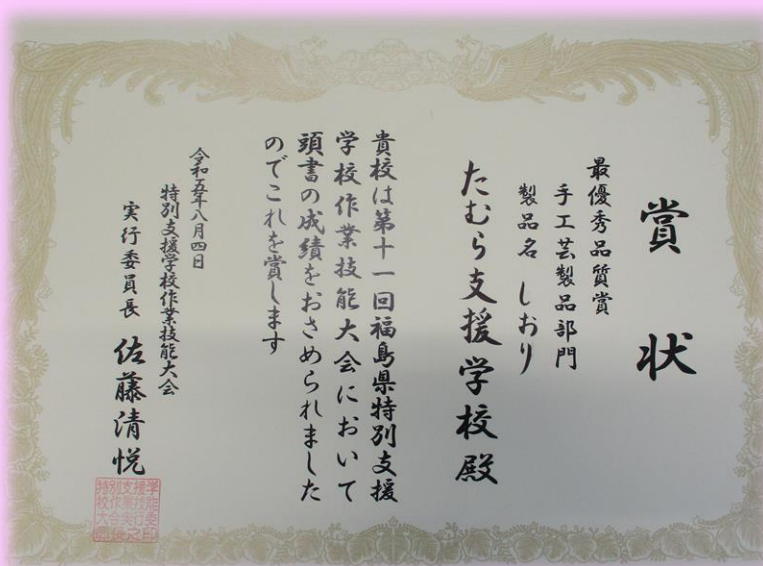 賞状
最優秀品質賞
手工芸製品部門
製品名 しおり
たむら支援学校殿
貴校は第十一回福島県特別支援
学校作業技能大会において
頭書の成績をおさめられました
のでこれを賞します
令和五年八月四日
特別支援学校作業技能大会
実行委員長 佐藤清悦